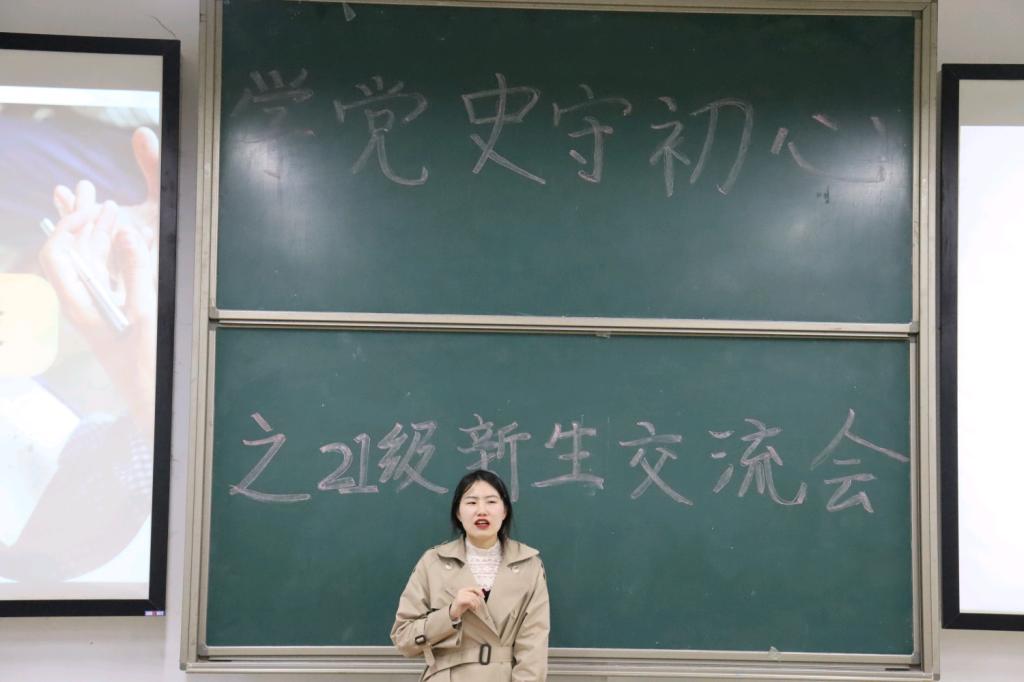 学党史守初心
之21级新生交流会